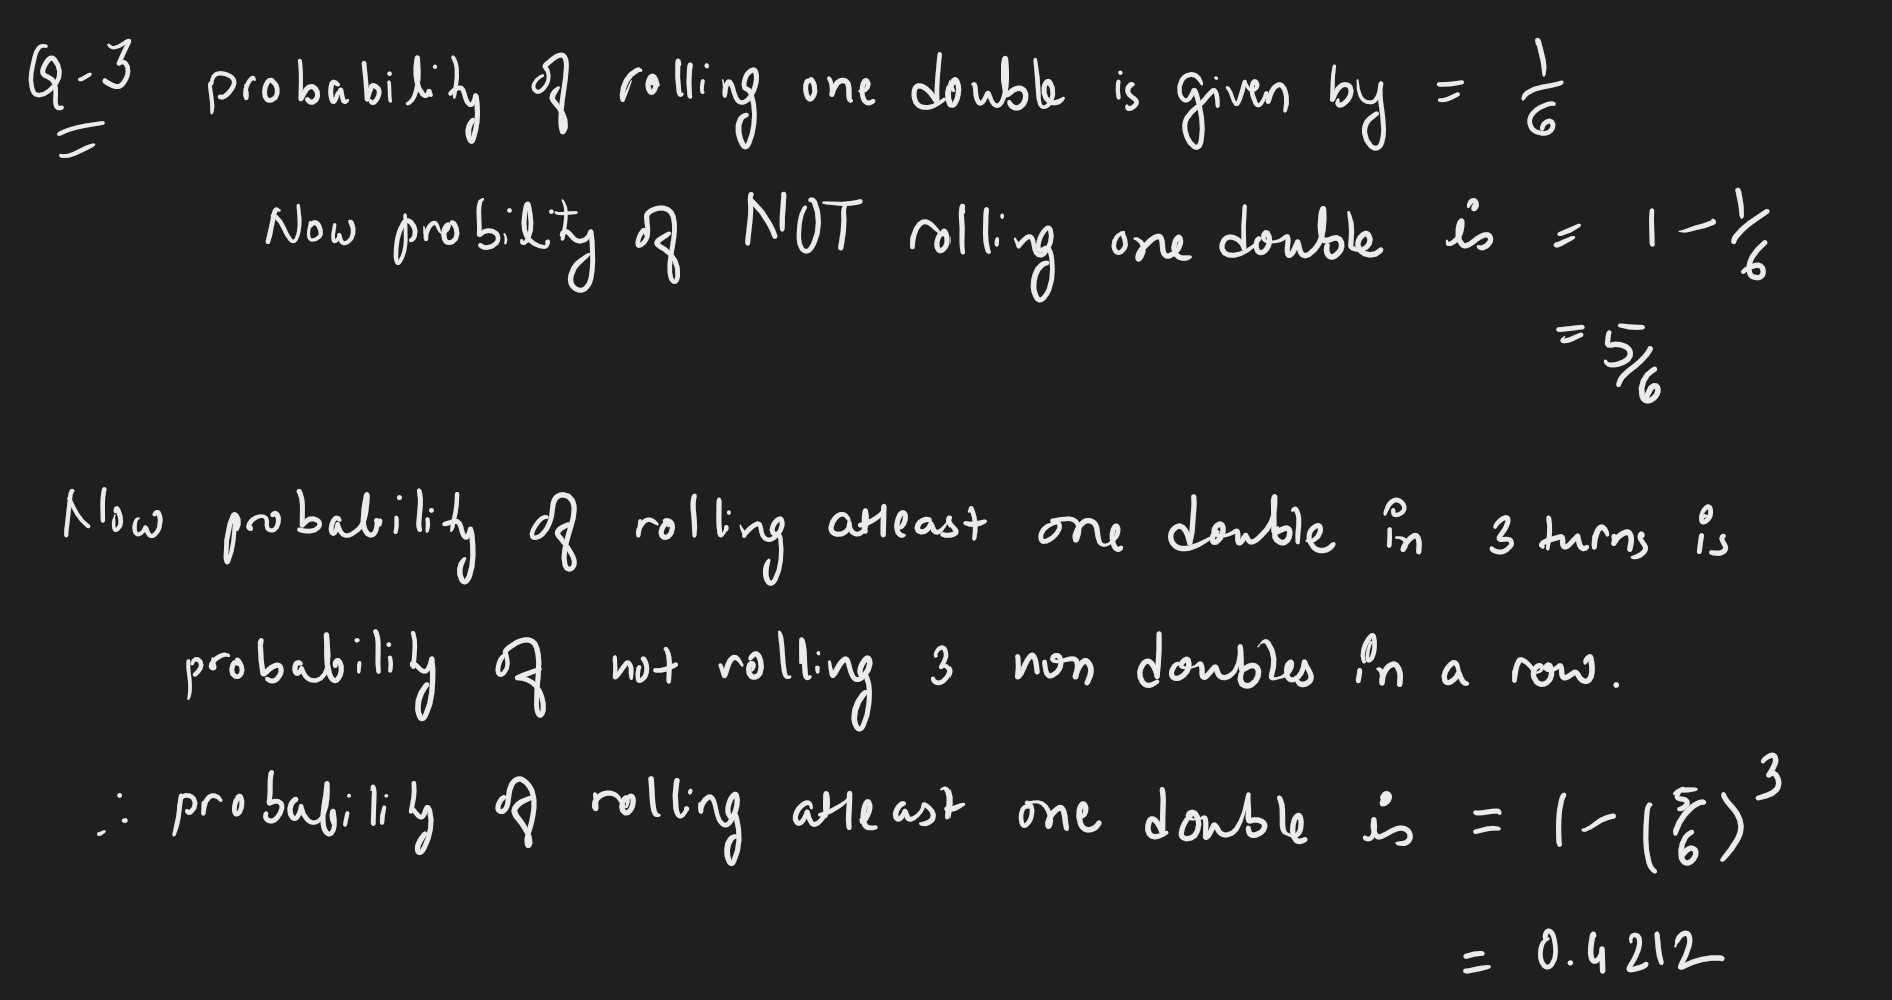 Q-3 probability of rolling one double is given by = 1/6
Now probilty of NOT rolling one double is = 1 - 1/6
= 5/6
Now probability of rolling atleast one double in 3 turns is
probability of not rolling 3 non doubles in a row.
∴ probability of rolling atleast one double is = 1 - (5/6)^3
= 0.4212